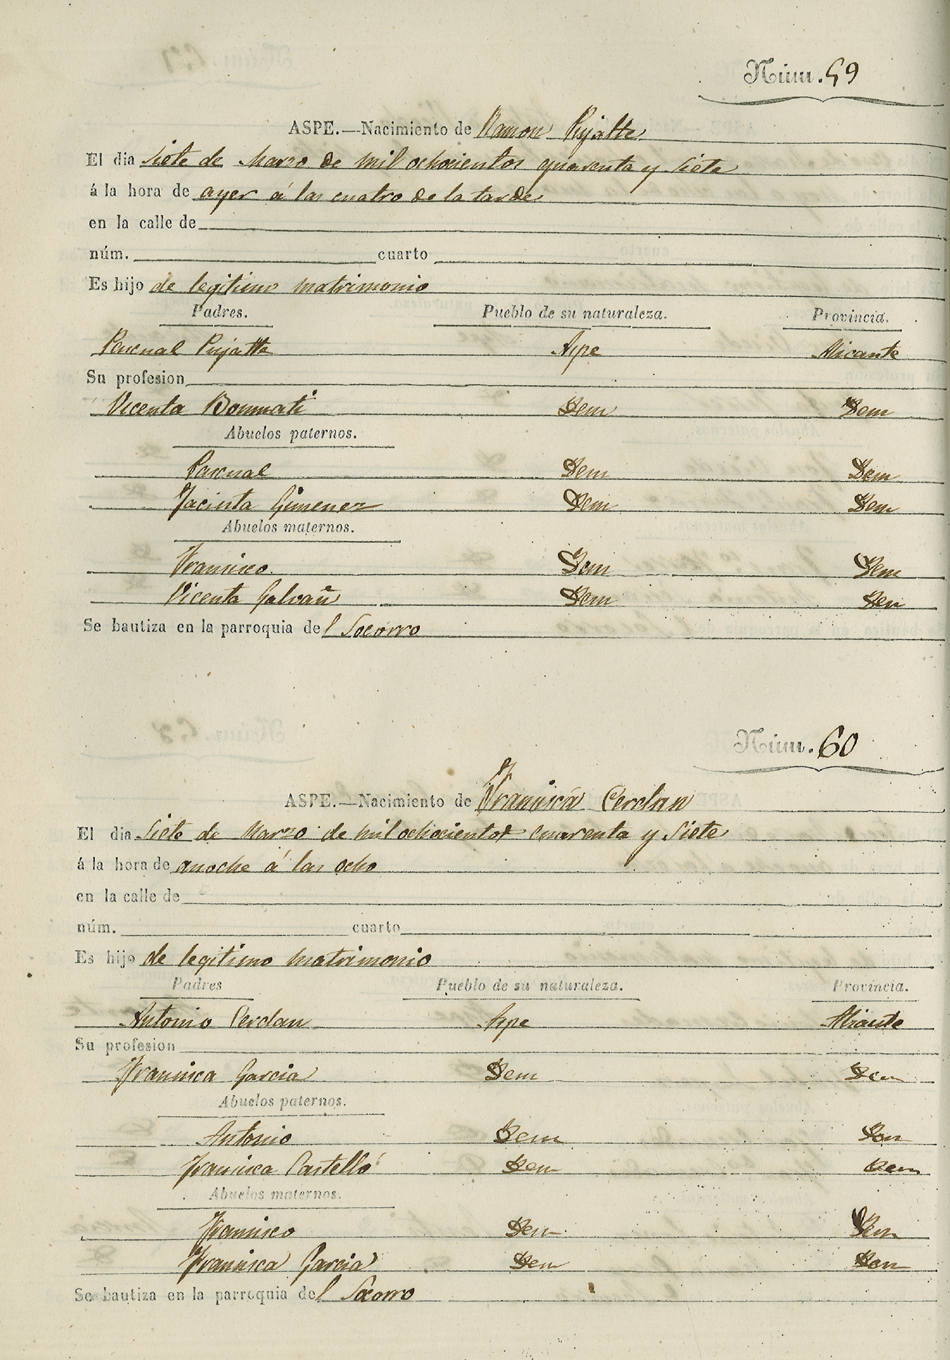 Núm. 59
ASPE.—Nacimiento de Ramon Pujalte
El dia Siete de Marzo de mil ochocientos quarenta y siete
á la hora de ayer á las cuatro de la tarde
en la calle de
núm. cuarto
Es hijo de legitimo matrimonio
Padres. Pueblo de su naturaleza. Provincia.
Pascual Pujalte Aspe Alicante
Su profesion
Vicenta Bonmati Idem Idem
Abuelos paternos.
Pascual Idem Idem
Jacinta Gimenez Idem Idem
Abuelos maternos.
Francisco Idem Idem
Vicenta Galvañ Idem Idem
Se bautiza en la parroquia del Socorro
Núm. 60
ASPE.—Nacimiento de Francisca Cerdan
El dia Siete de Marzo de mil ochocientos cuarenta y siete
á la hora de anoche á las ocho
en la calle de
núm. cuarto
Es hijo de legitimo matrimonio
Padres Pueblo de su naturaleza. Provincia.
Antonio Cerdan Aspe Alicante
Su profesion
Francisca Garcia Idem Idem
Abuelos paternos.
Antonio Idem Idem
Francisca Castelló Idem Idem
Abuelos maternos.
Francisco Idem Idem
Francisca Garcia Idem Idem
Se bautiza en la parroquia del Socorro